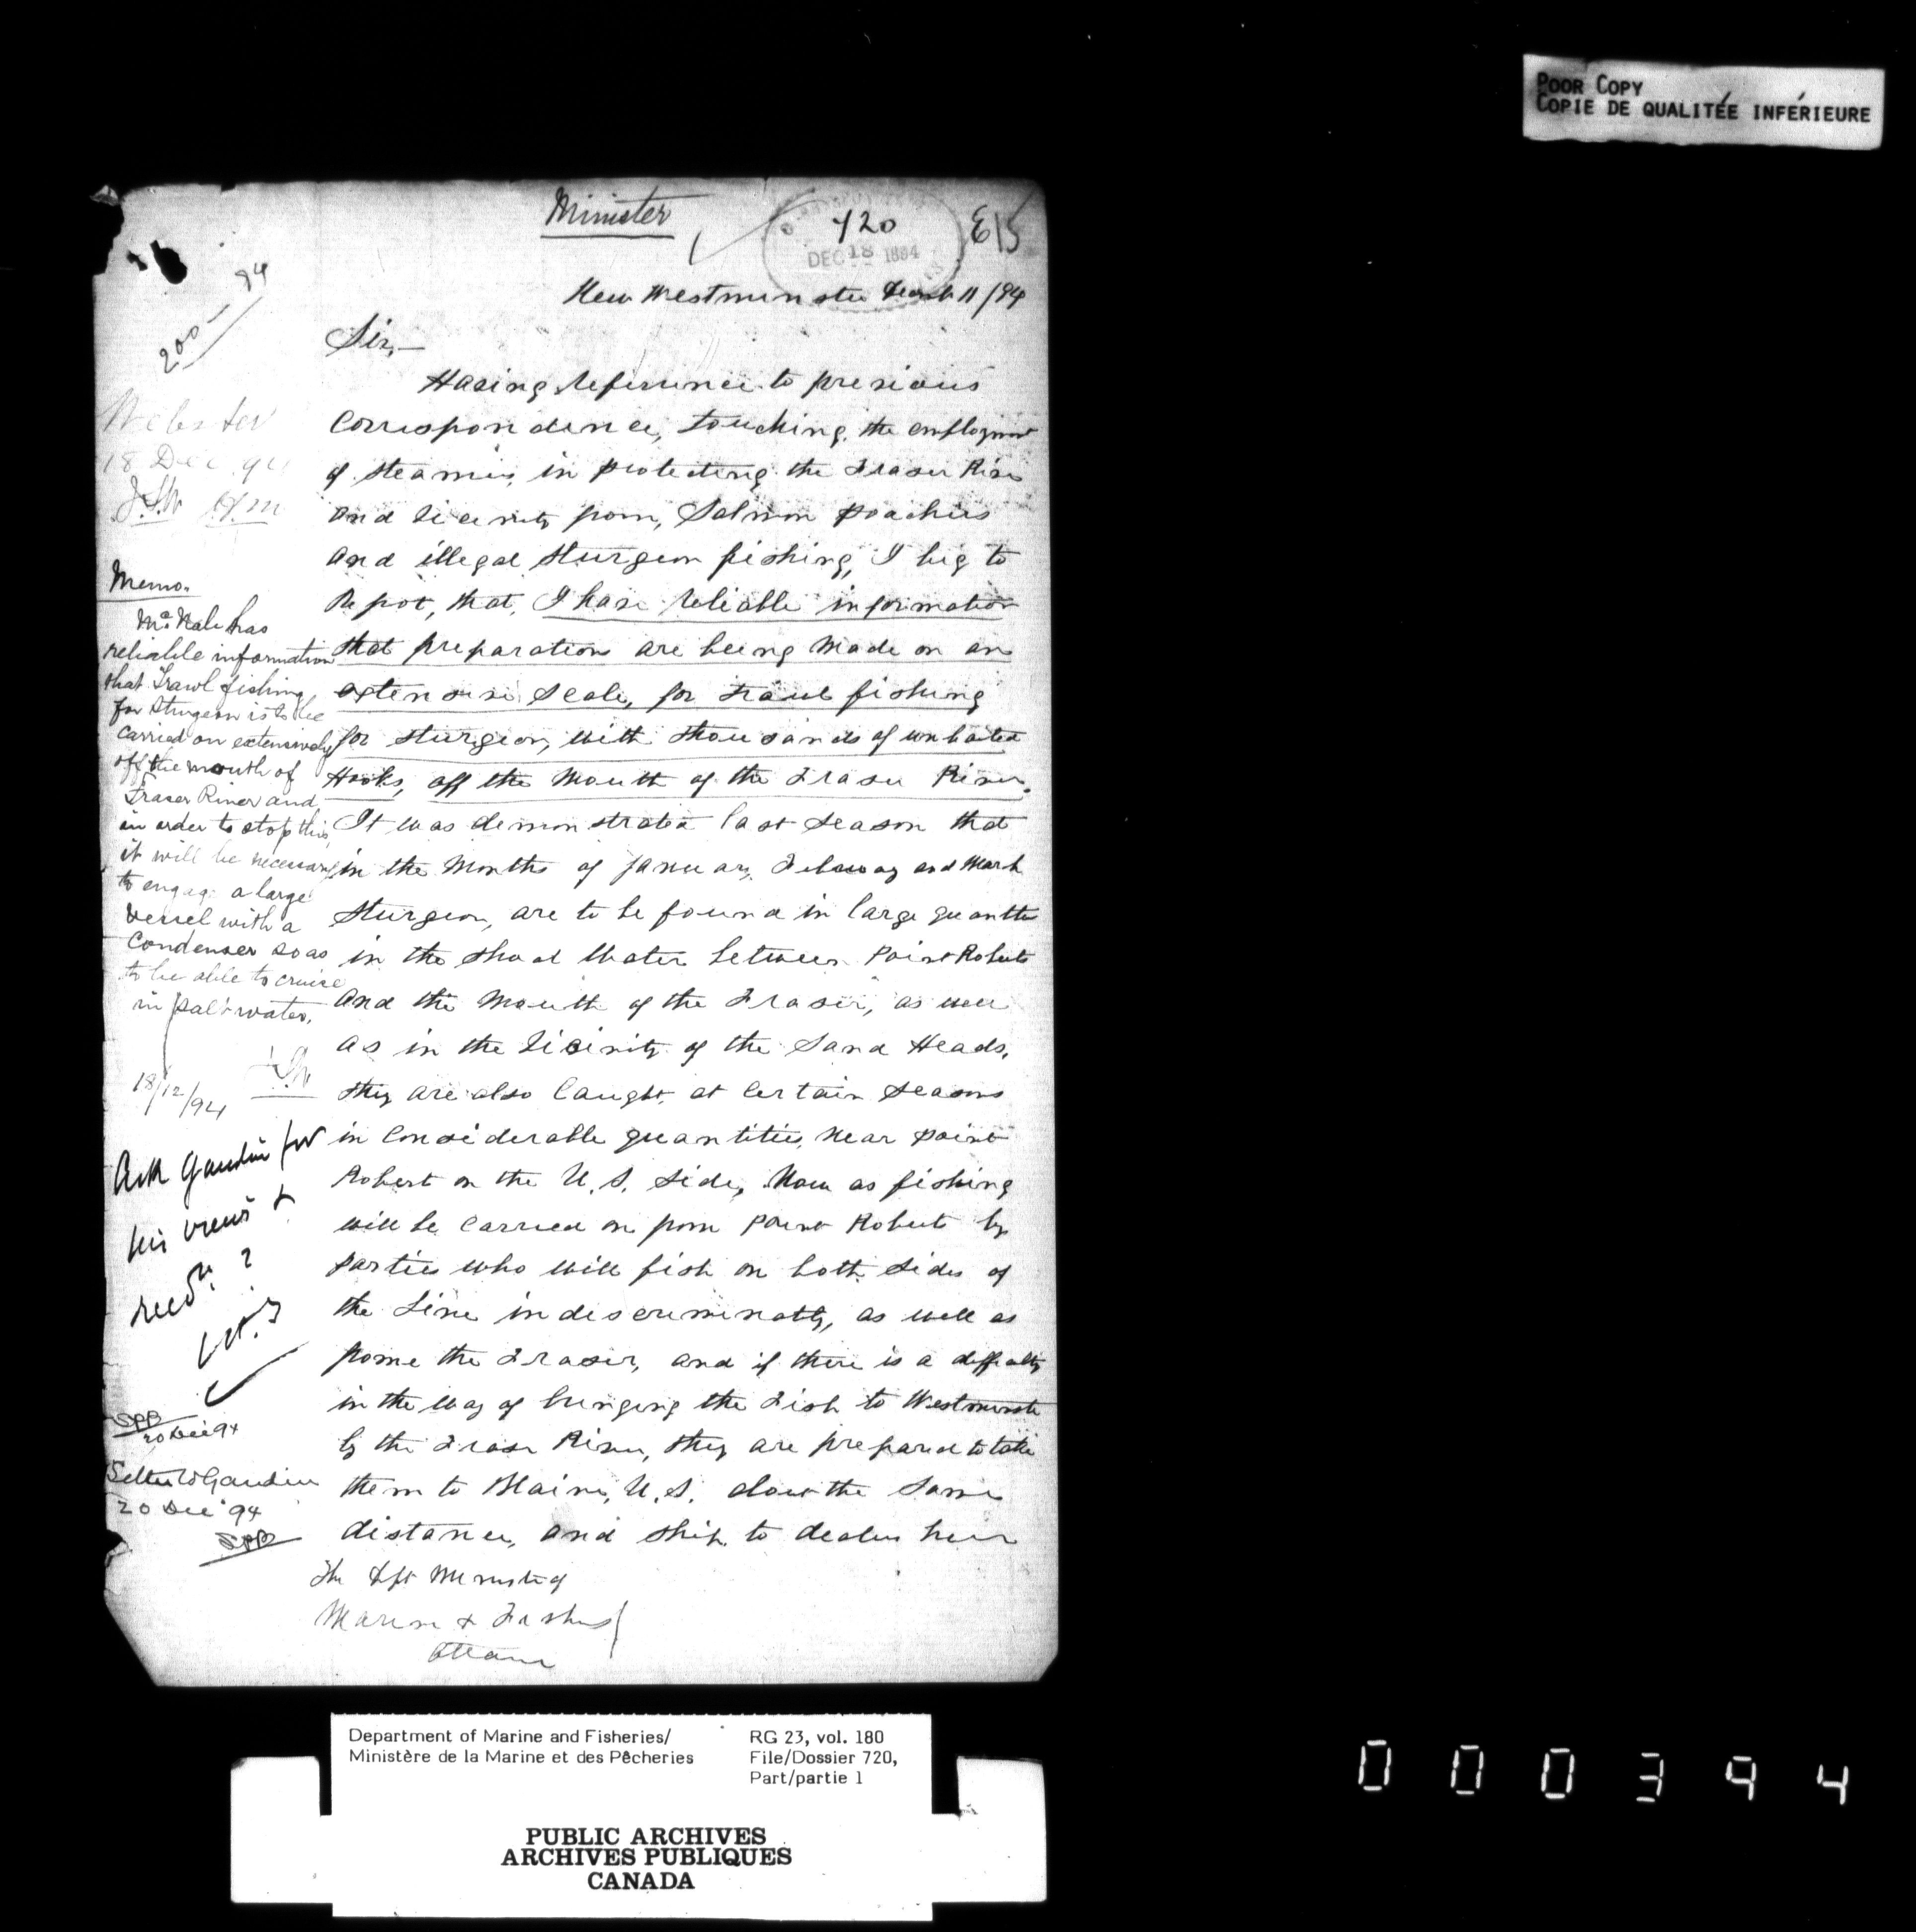 POOR COPY
COPIE DE QUALITÉE INFÉRIEURE
Minister
720
E15
DEC 18 1894
New Westminster Decr 11/94
200 - 94
Sir,—
Having reference to previous
Correspondence, touching the employment
of steamers in protecting the Fraser River
and vicinity from, Salmon poachers
and illegal sturgeon fishing, I beg to
Report, that, I have reliable information
that preparations are being made on an
extensive scale, for trawl fishing
for sturgeon, with thousands of unbaited
Hooks, off the Mouth of the Fraser River.
It was demonstrated last season that
in the Months of January, February and March
Sturgeon, are to be found in large quantities
in the shoal Water between Point Roberts
and the Mouth of the Fraser, as well
as in the vicinity of the Sand Heads,
they are also Caught, at Certain seasons
in Considerable quantities, near point
Robert on the U.S. side, Now as fishing
will be Carried on from Point Roberts by
parties who will fish on both sides of
the Line indiscriminatly, as well as
from the Fraser, and if there is a difficulty
in the way of bringing the Fish to Westminster
by the Fraser River, they are prepared to take
them to Blaine, U.S. about the same
distance, and ship to dealers here
The Dpt Minister of
Marine & Fisheries
Ottawa
Webster
18 Dec. 94
Memo.
McNab has
reliable information
that Trawl fishing
for Sturgeon is to be
carried on extensively
off the mouth of
Fraser River and
in order to stop this
it will be necessary
to engage a large
vessel with a
Condenser so as
to be able to cruise
in salt water.
18/12/94
Ask Gaudin for
his views &
recdn ?
SPB
20 Dec 94
Letter to Gaudin
20 Dec '94
SPB
Department of Marine and Fisheries/
Ministère de la Marine et des Pêcheries
RG 23, vol. 180
File/Dossier 720,
Part/partie 1
PUBLIC ARCHIVES
ARCHIVES PUBLIQUES
CANADA
000394